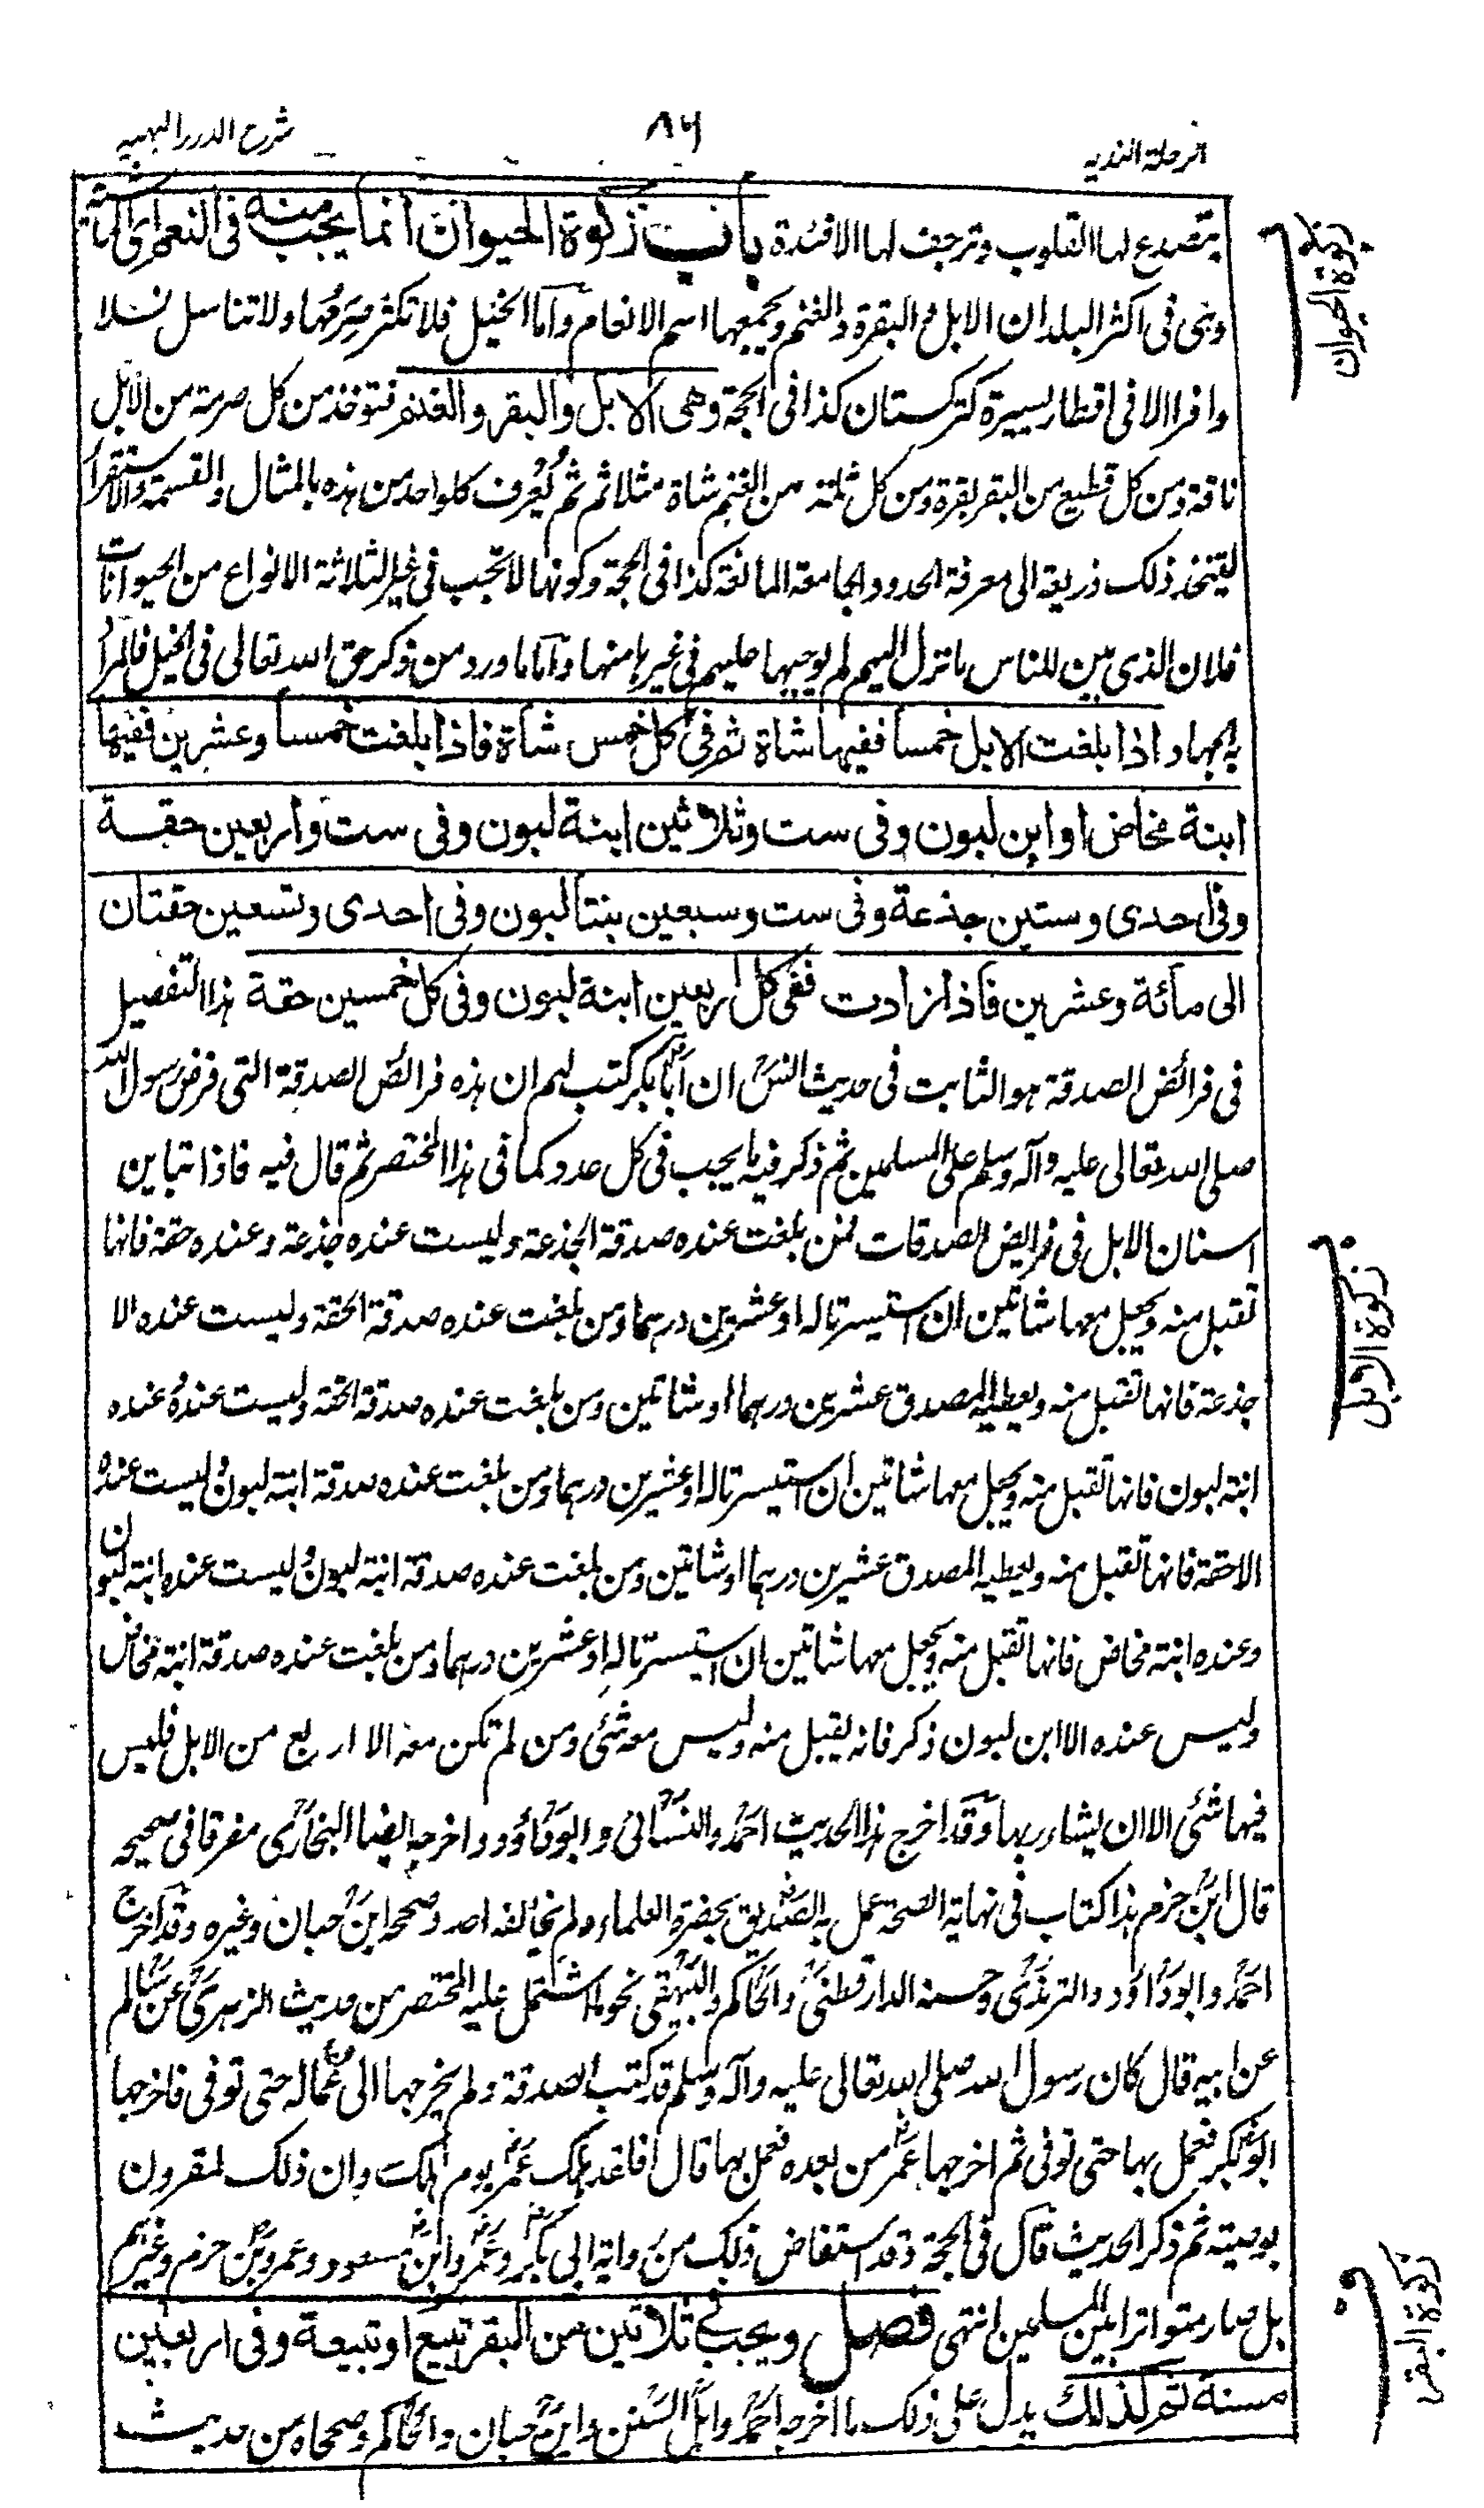 شرح الدرر البهيه
٨٦
الروضة الندیه
یتصدع لها القلوب وترجف لها الافئدة باب زكوة الحيوان انما يجب منه فى النعم اى الماشية
وہى فى اكثر البلدان الابل والبقرة والغنم ويجمعها اسم الانعام وأما الخيل فلا تكثر صرمها ولا تناسل نسلا
وافرا الا فى اقطار يسيرة كتركستان كذا فى الحجة وهى الابل والبقر والغنم فتوخذ من كل صرمة من الابل
ناقة ومن كل قطيع من البقر بقرة ومن كل ثلة من الغنم شاة مثلا ثم ثم يُعرف كلواحد من ہذه بالمثال والقسمة والاستقراء
ليتخذ ذلك ذريعة الى معرفة الحدود الجامعة المانعة كذا فى الحجة وكونها لا تجب فى غير الثلاثة الانواع من الحيوانات
فلان الذى بين للناس ما نزل اليهم لم يوجبها عليهم فى غيرہا منها وأما ما ورد من ذكر حق الله تعالى فى الخيل فالمراد
به الجہاد واذا بلغت الابل خمسا ففيها شاة ثم فى كل خمس شاة فاذا بلغت خمسا وعشرين ففيها
ابنة مخاض او ابن لبون وفى ست وثلاثين ابنة لبون وفى ست واربعين حقة
وفى احدى وستين جذعة وفى ست وسبعين بنتا لبون وفى احدى وتسعين حقتان
الى مائة وعشرين فاذا زادت ففى كل اربعين ابنة لبون وفى كل خمسين حقة ہذا التفصيل
فى فرائض الصدقة هو الثابت فى حديث انس ان أبا بكر كتب لہم ان ہذه فرائض الصدقة التى فرض رسول الله
صلى الله تعالى عليه وآله وسلم على المسلمين ثم ذكر فيه ما يجب فى كل عدد كما فى ہذا المختصر ثم قال فيه فاذا تباين
اسنان الابل فى فرايض الصدقات فمن بلغت عنده صدقة الجذعة وليست عنده جذعة وعنده حقة فانها
تقبل منه ويجعل معها شاتين ان استيسرتا له او عشرين درہما ومن بلغت عنده صدقة الحقة وليست عنده الا
جذعة فانها تقبل منه ويعطيه المصدق عشرين درہما او شاتين ومن بلغت عنده صدقة الحقة وليست عنده وعنده
ابنة لبون فانها تقبل منه ويجعل معها شاتين ان استيسرتا له او عشرين درہما ومن بلغت عنده صدقة ابنة لبون وليست عنده
الا حقة فانها تقبل منه ويعطيه المصدق عشرين درہما او شاتين ومن بلغت عنده صدقة ابنة لبون وليست عنده ابنة لبون
وعنده ابنة مخاض فانها تقبل منه ويجعل معها شاتين ان استيسرتا له او عشرين درہما ومن بلغت عنده صدقة ابنة مخاض
وليس عنده الا ابن لبون ذكر فانه يقبل منه وليس معه شئى ومن لم تكن معه الا اربع من الابل فليس
فيها شئى الا ان يشاء ربہا وقد اخرج ہذا الحديث احمد والنسائى وابو داؤد واخرجه ايضا البخارى مفرقا فى صحيحه
قال ابن حزم ہذا كتاب فى نهاية الصحة عمل به الصديق بحضرة العلماء ولم يخالفه احد وصححه ابن حبان وغيره وقد اخرج
احمد وابو داؤد والترمذى وحسنه الدارقطنى والحاكم والبيہقى نحو ما اشتمل عليه المختصر من حديث الزہرى عن سالم
عن ابيه قال كان رسول الله صلى الله تعالى عليه وآله وسلم قد كتب الصدقة ولم يخرجہا الى عماله حتى توفى فاخرجہا
ابو بكر فعمل بہا حتى توفى ثم اخرجہا عمر من بعده فعمل بہا قال فلقد ہلك عمر يوم ہلك وان ذلك لمقرون
بوصيته ثم ذكر الحديث قال فى الحجة وقد استفاض ذلك من رواية ابى بكر وعمر وابن مسعود وعمرو بن حزم وغيرہم
بل صار متواترا بين المسلمين انتہى فصل ويجب فى ثلاثين من البقر تبيع او تبيعة وفى اربعين
مسنة ثم كذلك يدل على ذلك ما اخرجه احمد واہل السنن وابن حبان والحاكم وصححاه من حديث
زكوة الحيوان
زكوة الابل
زكوة البقر